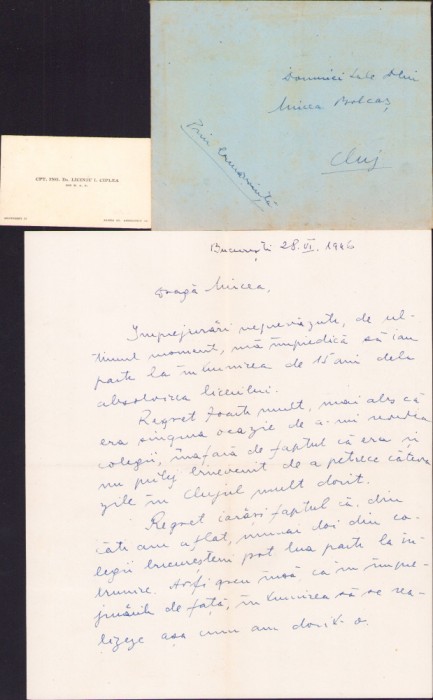 Domniei Sale Dlui
Mircea Bolcaș
Prin
Cluj
București 28.VI.1946
Dragă Mircea,
Împrejurări neprevăzute, de ul-
timul moment, mă împiedică să iau
parte la întrunirea de 15 ani dela
absolvirea liceului.
Regret foarte mult, mai ales că
era singura ocazie de a-mi revedea
colegii, înafară de faptul că era și
un prilej binevenit de a petrece câteva
zile în Clujul mult dorit.
Regret iarăși faptul că, din
câte am aflat, numai doi din co-
legii bucureșteni pot lua parte la în-
trunire. Așa greu însă, ca în împre-
jurările de față, întrunirea să se rea-
lizeze așa cum am dorit-o.